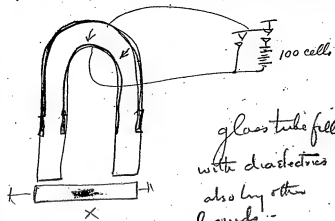 100 cells
glass tube fill
with dialectrics
also by other
X